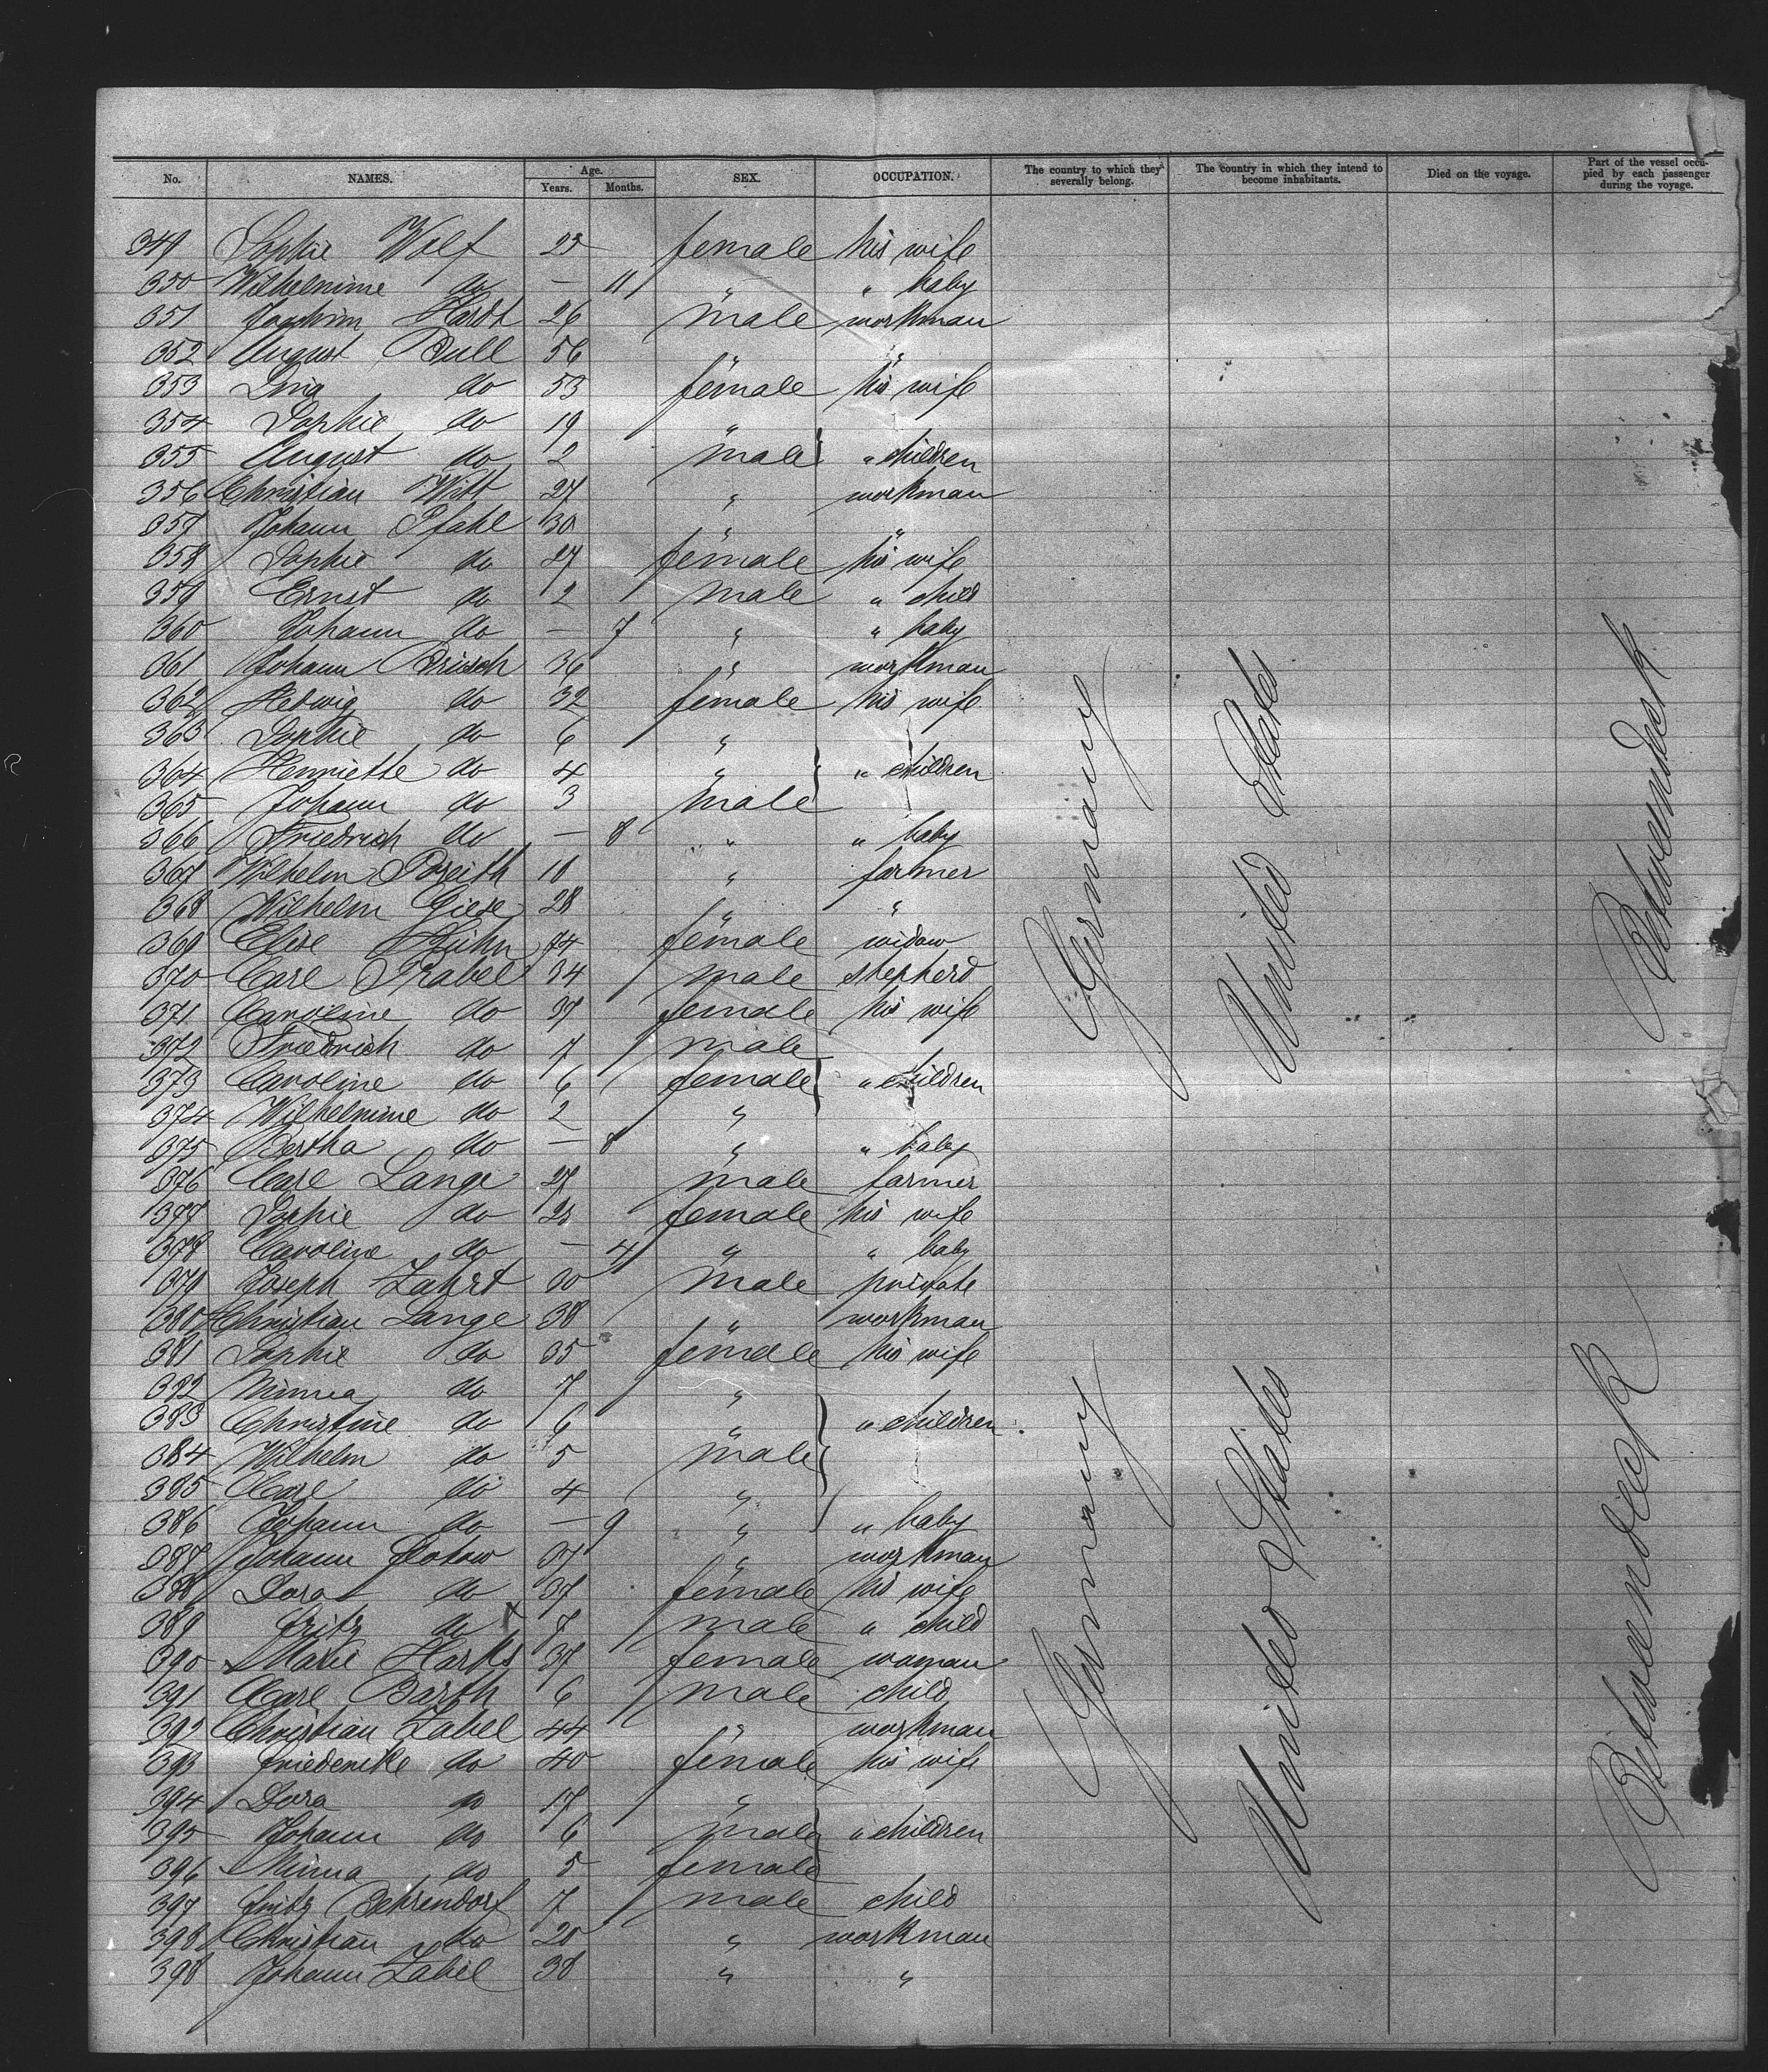 No. NAMES. Age. Years. Months. SEX. OCCUPATION. The country to which they severally belong. The country in which they intend to become inhabitants. Died on the voyage. Part of the vessel occupied by each passenger during the voyage.
349 Sophie Wolf 25 female his wife
350 Wilhelmine do — 11 " " baby
351 Joachim Hardt 26 male workman
352 August Bull 56 " "
353 Lina do 53 female his wife
354 Sophie do 19 "
355 August do 2 male " children
356 Christian Witt 27 " workman
357 Johann Pfahl 30 " "
358 Sophie do 27 female his wife
359 Ernst do 2 male " child
360 Johann do — 7 " " baby
361 Johann Brüsch 36 " workman
362 Hedwig do 32 female his wife
363 Sophie do 6 "
364 Henriette do 4 " " children
365 Johann do 3 male
366 Friedrich do — 8 " " baby
367 Wilhelm 18 " farmer
368 Wilhelm Giese 28 " "
369 Elise Kühn 74 female widow
370 Carl 34 male shepherd
371 Caroline do 37 female his wife
372 Friedrich do 7 male
373 Caroline do 6 female " children
374 Wilhelmine do 2 "
375 Bertha do — 8 " " baby
376 Carl Lange 27 male farmer
377 Sophie do 25 female his wife
378 Caroline do — 4 " " baby
379 Joseph male private
380 Christian Lange 38 " workman
381 Sophie do 35 female his wife
382 Minna do 7 "
383 Christine do 6 " " children
384 Wilhelm do 5 male
385 Carl do 4 "
386 Johann do — 9 " " baby
387 Johann 37 " workman
388 Dora do 37 female his wife
389 Fritz do 7 male " child
390 Marie Harks 37 female woman
391 Carl Barth 6 male child
392 Christian Zabel 44 " workman
393 Friederike do 40 female his wife
394 Dora do 17 "
395 Johann do 6 male " children
396 Minna do 5 female
397 Fritz Behrendorf 7 male child
398 Christian do 20 " workman
398 Johann Zabel 38 " "
Germany United States Betweendeck
Germany United States Betweendeck